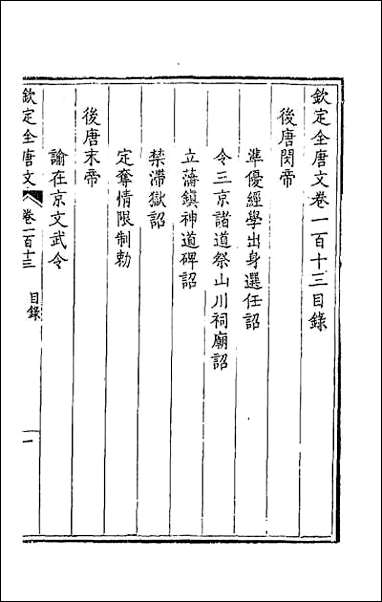 欽定全唐文卷一百十三目錄
後唐閔帝
準優經學出身選任詔
令三京諸道祭山川祠廟詔
立藩鎮神道碑詔
禁滯獄詔
定奪情限制勅
後唐末帝
諭在京文武令
欽定全唐文
卷一百十三
目錄
一